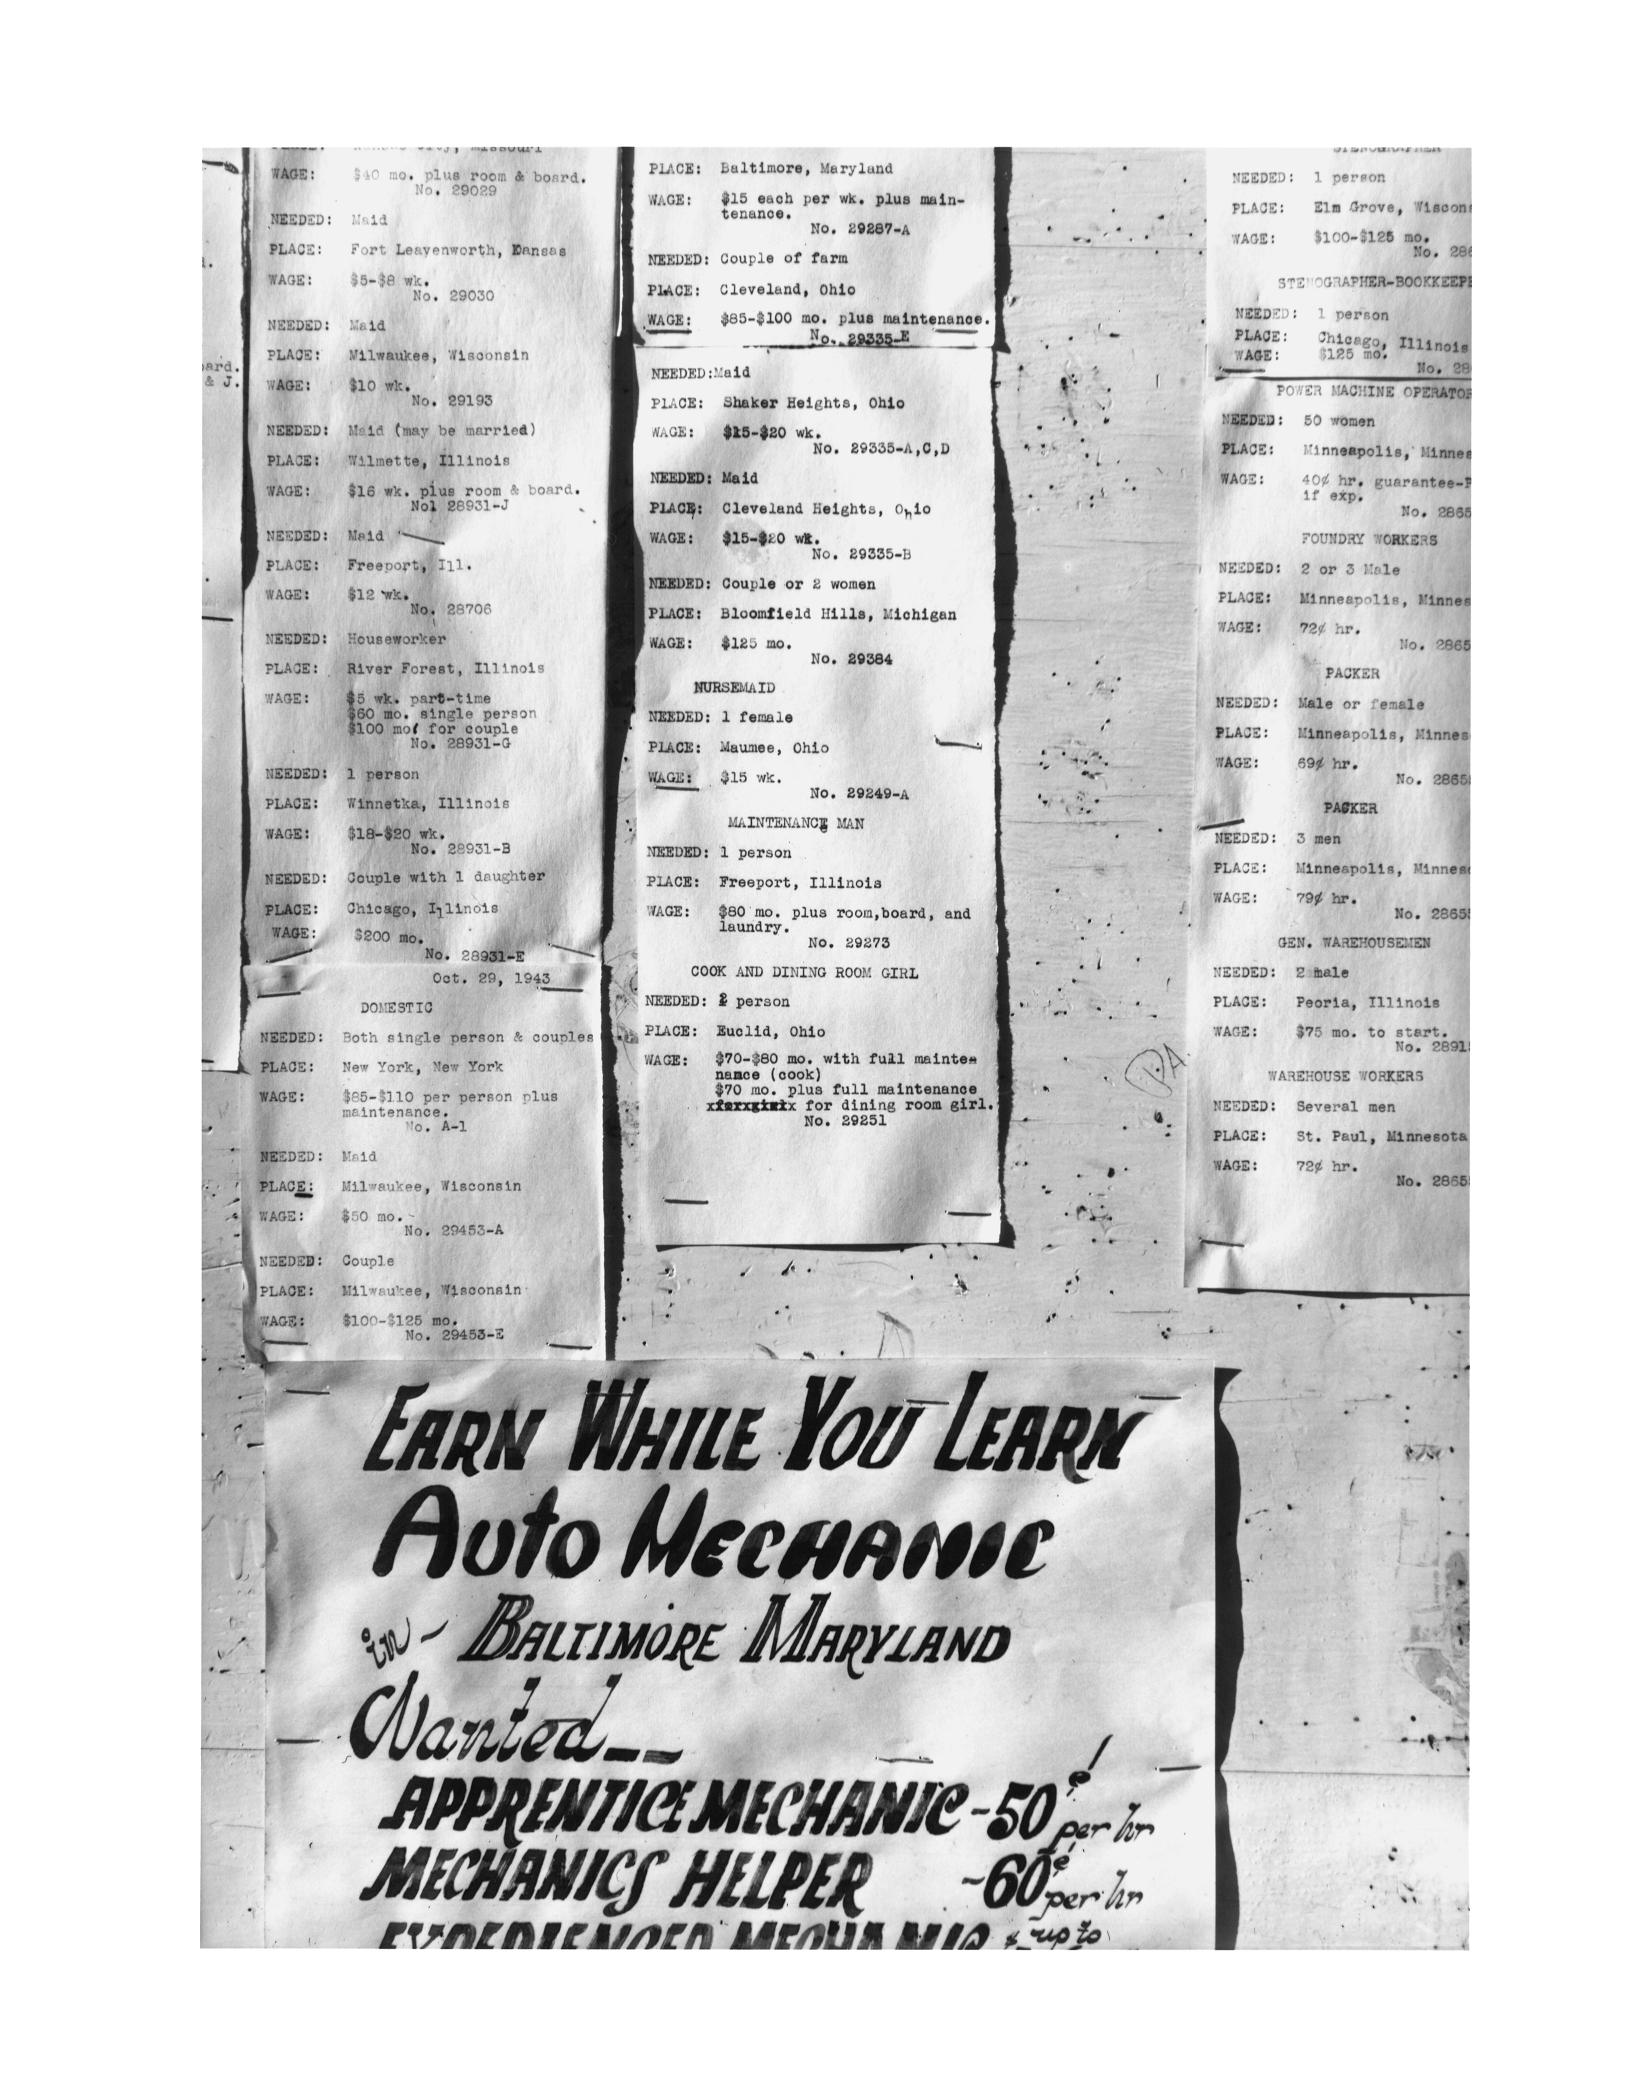 WAGE: $40 mo. plus room & board.
No. 29029
NEEDED: Maid
PLACE: Fort Leavenworth, Kansas
WAGE: $5-$8 wk.
No. 29030
NEEDED: Maid
PLACE: Milwaukee, Wisconsin
WAGE: $10 wk.
No. 29193
NEEDED: Maid (may be married)
PLACE: Wilmette, Illinois
WAGE: $16 wk. plus room & board.
Nol 28931-J
NEEDED: Maid
PLACE: Freeport, Ill.
WAGE: $12 wk.
No. 28706
NEEDED: Houseworker
PLACE: River Forest, Illinois
WAGE: $5 wk. part-time
$60 mo. single person
$100 mo. for couple
No. 28931-G
NEEDED: 1 person
PLACE: Winnetka, Illinois
WAGE: $18-$20 wk.
No. 28931-B
NEEDED: Couple with 1 daughter
PLACE: Chicago, Illinois
WAGE: $200 mo.
No. 28931-E
Oct. 29, 1943
DOMESTIC
NEEDED: Both single person & couples
PLACE: New York, New York
WAGE: $85-$110 per person plus
maintenance.
No. A-1
NEEDED: Maid
PLACE: Milwaukee, Wisconsin
WAGE: $50 mo.
No. 29453-A
NEEDED: Couple
PLACE: Milwaukee, Wisconsin
WAGE: $100-$125 mo.
No. 29453-E
PLACE: Baltimore, Maryland
WAGE: $15 each per wk. plus main-
tenance.
No. 29287-A
NEEDED: Couple of farm
PLACE: Cleveland, Ohio
WAGE: $85-$100 mo. plus maintenance.
No. 29335-E
NEEDED:Maid
PLACE: Shaker Heights, Ohio
WAGE: $15-$20 wk.
No. 29335-A,C,D
NEEDED: Maid
PLACE: Cleveland Heights, Ohio
WAGE: $15-$20 wk.
No. 29335-B
NEEDED: Couple or 2 women
PLACE: Bloomfield Hills, Michigan
WAGE: $125 mo.
No. 29384
NURSEMAID
NEEDED: 1 female
PLACE: Maumee, Ohio
WAGE: $15 wk.
No. 29249-A
MAINTENANCE MAN
NEEDED: 1 person
PLACE: Freeport, Illinois
WAGE: $80 mo. plus room,board, and
laundry.
No. 29273
COOK AND DINING ROOM GIRL
NEEDED: 2 person
PLACE: Euclid, Ohio
WAGE: $70-$80 mo. with full mainte-
nance (cook)
$70 mo. plus full maintenance
for dining room girl.
No. 29251
STENOGRAPHER
NEEDED: 1 person
PLACE: Elm Grove, Wiscons
WAGE: $100-$125 mo.
No. 286
STENOGRAPHER-BOOKKEEPE
NEEDED: 1 person
PLACE: Chicago, Illinois
WAGE: $125 mo.
No. 28
POWER MACHINE OPERATOR
NEEDED: 50 women
PLACE: Minneapolis, Minnes
WAGE: 40¢ hr. guarantee-P
if exp.
No. 2865
FOUNDRY WORKERS
NEEDED: 2 or 3 Male
PLACE: Minneapolis, Minnes
WAGE: 72¢ hr.
No. 2865
PACKER
NEEDED: Male or female
PLACE: Minneapolis, Minnes
WAGE: 69¢ hr.
No. 2865
PACKER
NEEDED: 3 men
PLACE: Minneapolis, Minnes
WAGE: 79¢ hr.
No. 2865
GEN. WAREHOUSEMEN
NEEDED: 2 male
PLACE: Peoria, Illinois
WAGE: $75 mo. to start.
No. 2891
WAREHOUSE WORKERS
NEEDED: Several men
PLACE: St. Paul, Minnesota
WAGE: 72¢ hr.
No. 2865
EARN WHILE YOU LEARN
AUTO MECHANIC
in - BALTIMORE MARYLAND
Wanted--
APPRENTICE MECHANIC -50¢ per hr
MECHANICS HELPER -60¢ per hr
EXPERIENCED MECHANIC ¢ up to